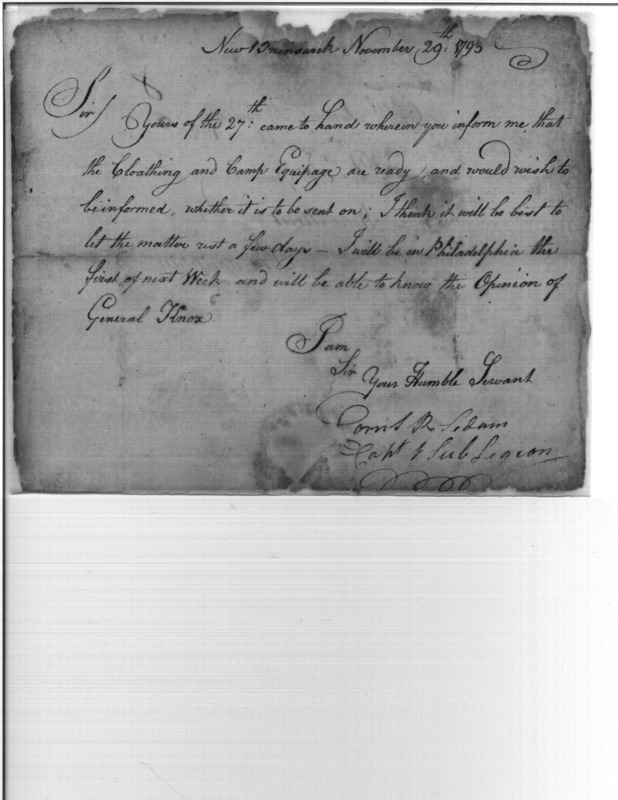 New Brunswick November 29th: 1793
Sir/ Yours of the 27th: came to hand wherein you inform me, that
the Cloathing and Camp Equipage are ready, and would wish to
be informed, whether it is to be sent on; I think it will be best to
let the matter rest a few days – I will be in Philadelphia the
first of next Week and will be able to know the Opinion of
General Knox
I am
Sir
Your Humble Servant
Corns R Sedam
Capt 1 Sub Legion